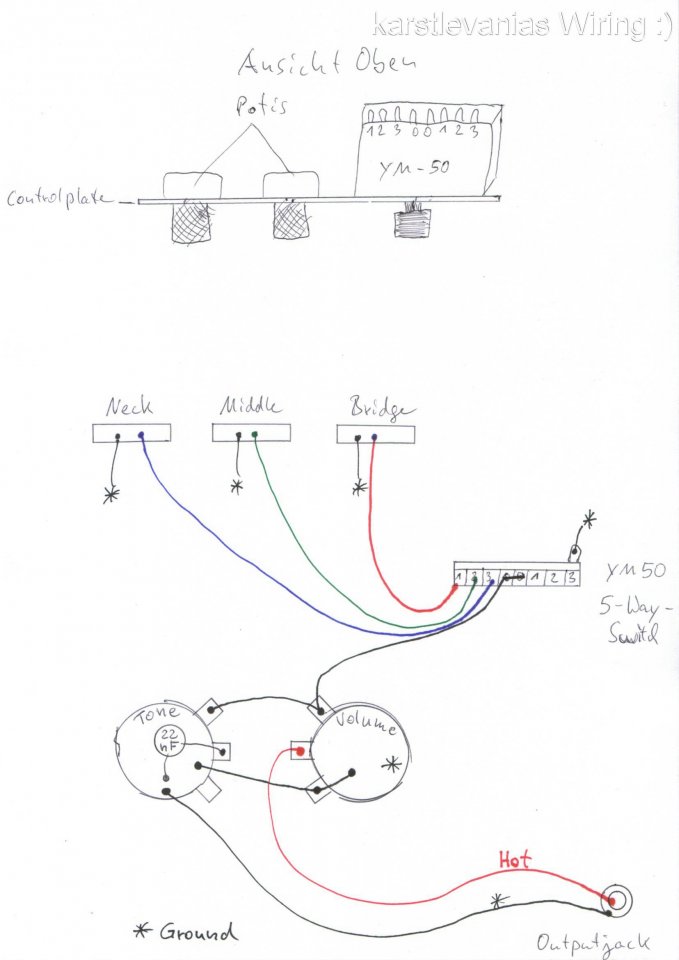 karstlevanias Wiring :)
Ansicht Oben
Potis
1 2 3 0 0 1 2 3
YM-50
Controlplate
Neck
Middle
Bridge
*
*
*
*
1 2 3 0 0 1 2 3
YM50
5-Way-
Switch
Tone
22
nF
Volume
*
Hot
*
* Ground
Outputjack